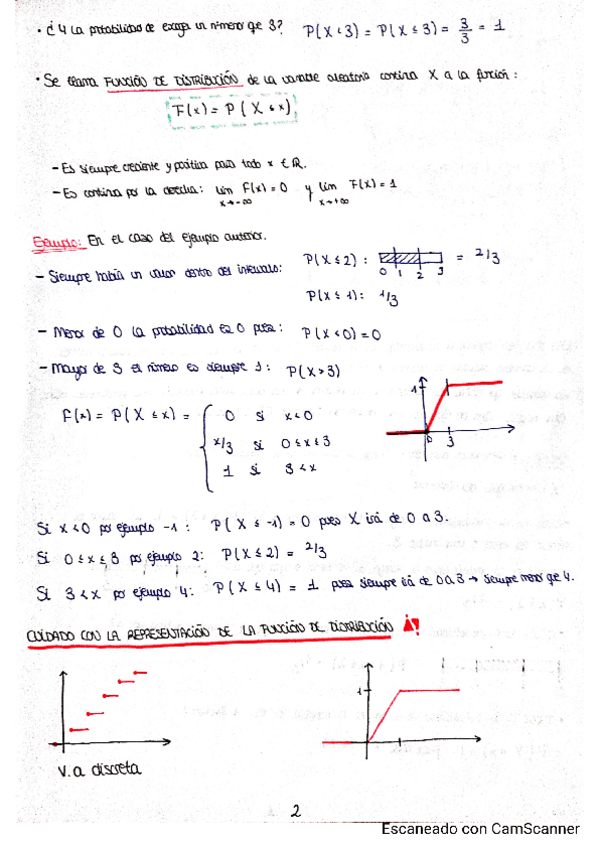 • ¿Y la probabilidad de escoga un número que 3? P(X<3) = P(X ≤ 3) = 3/3 = 1
• Se llama FUNCIÓN DE DISTRIBUCIÓN de la variable aleatoria continua X a la función:
F(x) = P(X ≤ x)
- Es siempre creciente y positiva para todo x ∈ ℝ.
- Es continua por la derecha: lim F(x) = 0 y lim F(x) = 1
x→-∞ x→+∞
Ejemplo: En el caso del ejemplo anterior.
- Siempre habrá un valor dentro del intervalo: P(X ≤ 2) : = 2/3
0 1 2 3
P(X ≤ 1): 1/3
- Menor de 0 la probabilidad es 0 pues: P(X<0) = 0
- Mayor de 3 el número es siempre 1: P(X>3)
F(x) = P(X ≤ x) = 0 si x<0
x/3 si 0≤x≤3
1 si 3<x
1
0 3
Si x<0 por ejemplo -1: P(X ≤ -1) = 0 pues X irá de 0 a 3.
Si 0≤x≤3 por ejemplo 2: P(X≤2) = 2/3
Si 3<x por ejemplo 4: P(X ≤ 4) = 1 pues siempre irá de 0 a 3 → siempre menor que 4.
CUIDADO CON LA REPRESENTACIÓN DE LA FUNCIÓN DE DISTRIBUCIÓN
1
v.a discreta
2
Escaneado con CamScanner